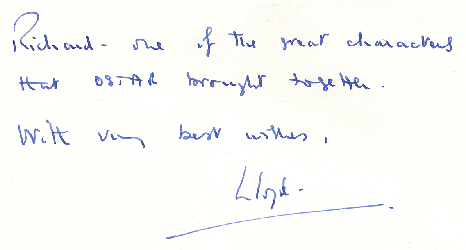 Richard - one of the great characters
that OSTAR brought together.
With very best wishes,
Lloyd.